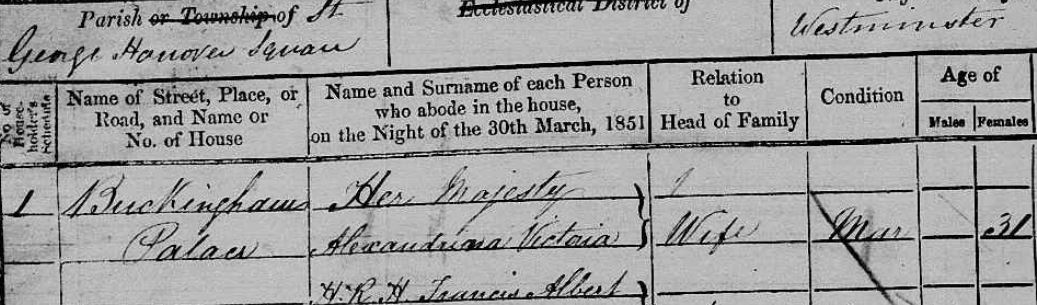 Parish or Township of St
George Hanover Square
Ecclesiastical District of
Westminster
No. of House-holder's Schedule
Name of Street, Place, or
Road, and Name or
No. of House
Name and Surname of each Person
who abode in the house,
on the Night of the 30th March, 1851
Relation
to
Head of Family
Condition
Age of
Males
Females
1
Buckingham
Her Majesty
Palace
Alexandrina Victoria
Wife
Mar
31
H. R. H. Francis Albert